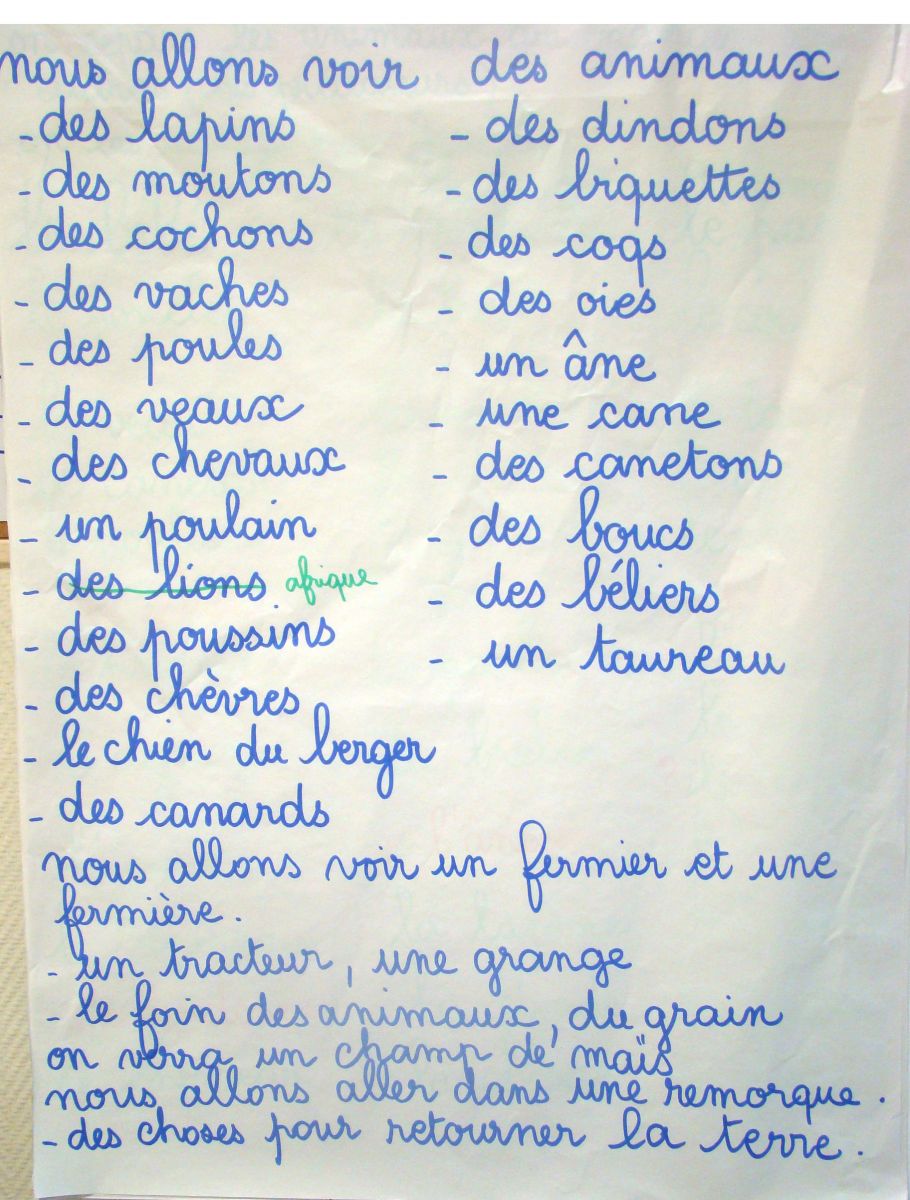 nous allons voir des animaux
- des lapins
- des moutons
- des cochons
- des vaches
- des poules
- des veaux
- des chevaux
- un poulain
- des lions afrique
- des poussins
- des chèvres
- le chien du berger
- des canards
- des dindons
- des biquettes
- des coqs
- des oies
- un âne
- une cane
- des canetons
- des boucs
- des béliers
- un taureau
nous allons voir un fermier et une
fermière.
- un tracteur, une grange
- le foin des animaux, du grain
on verra un champ de maïs
nous allons aller dans une remorque.
- des choses pour retourner la terre.